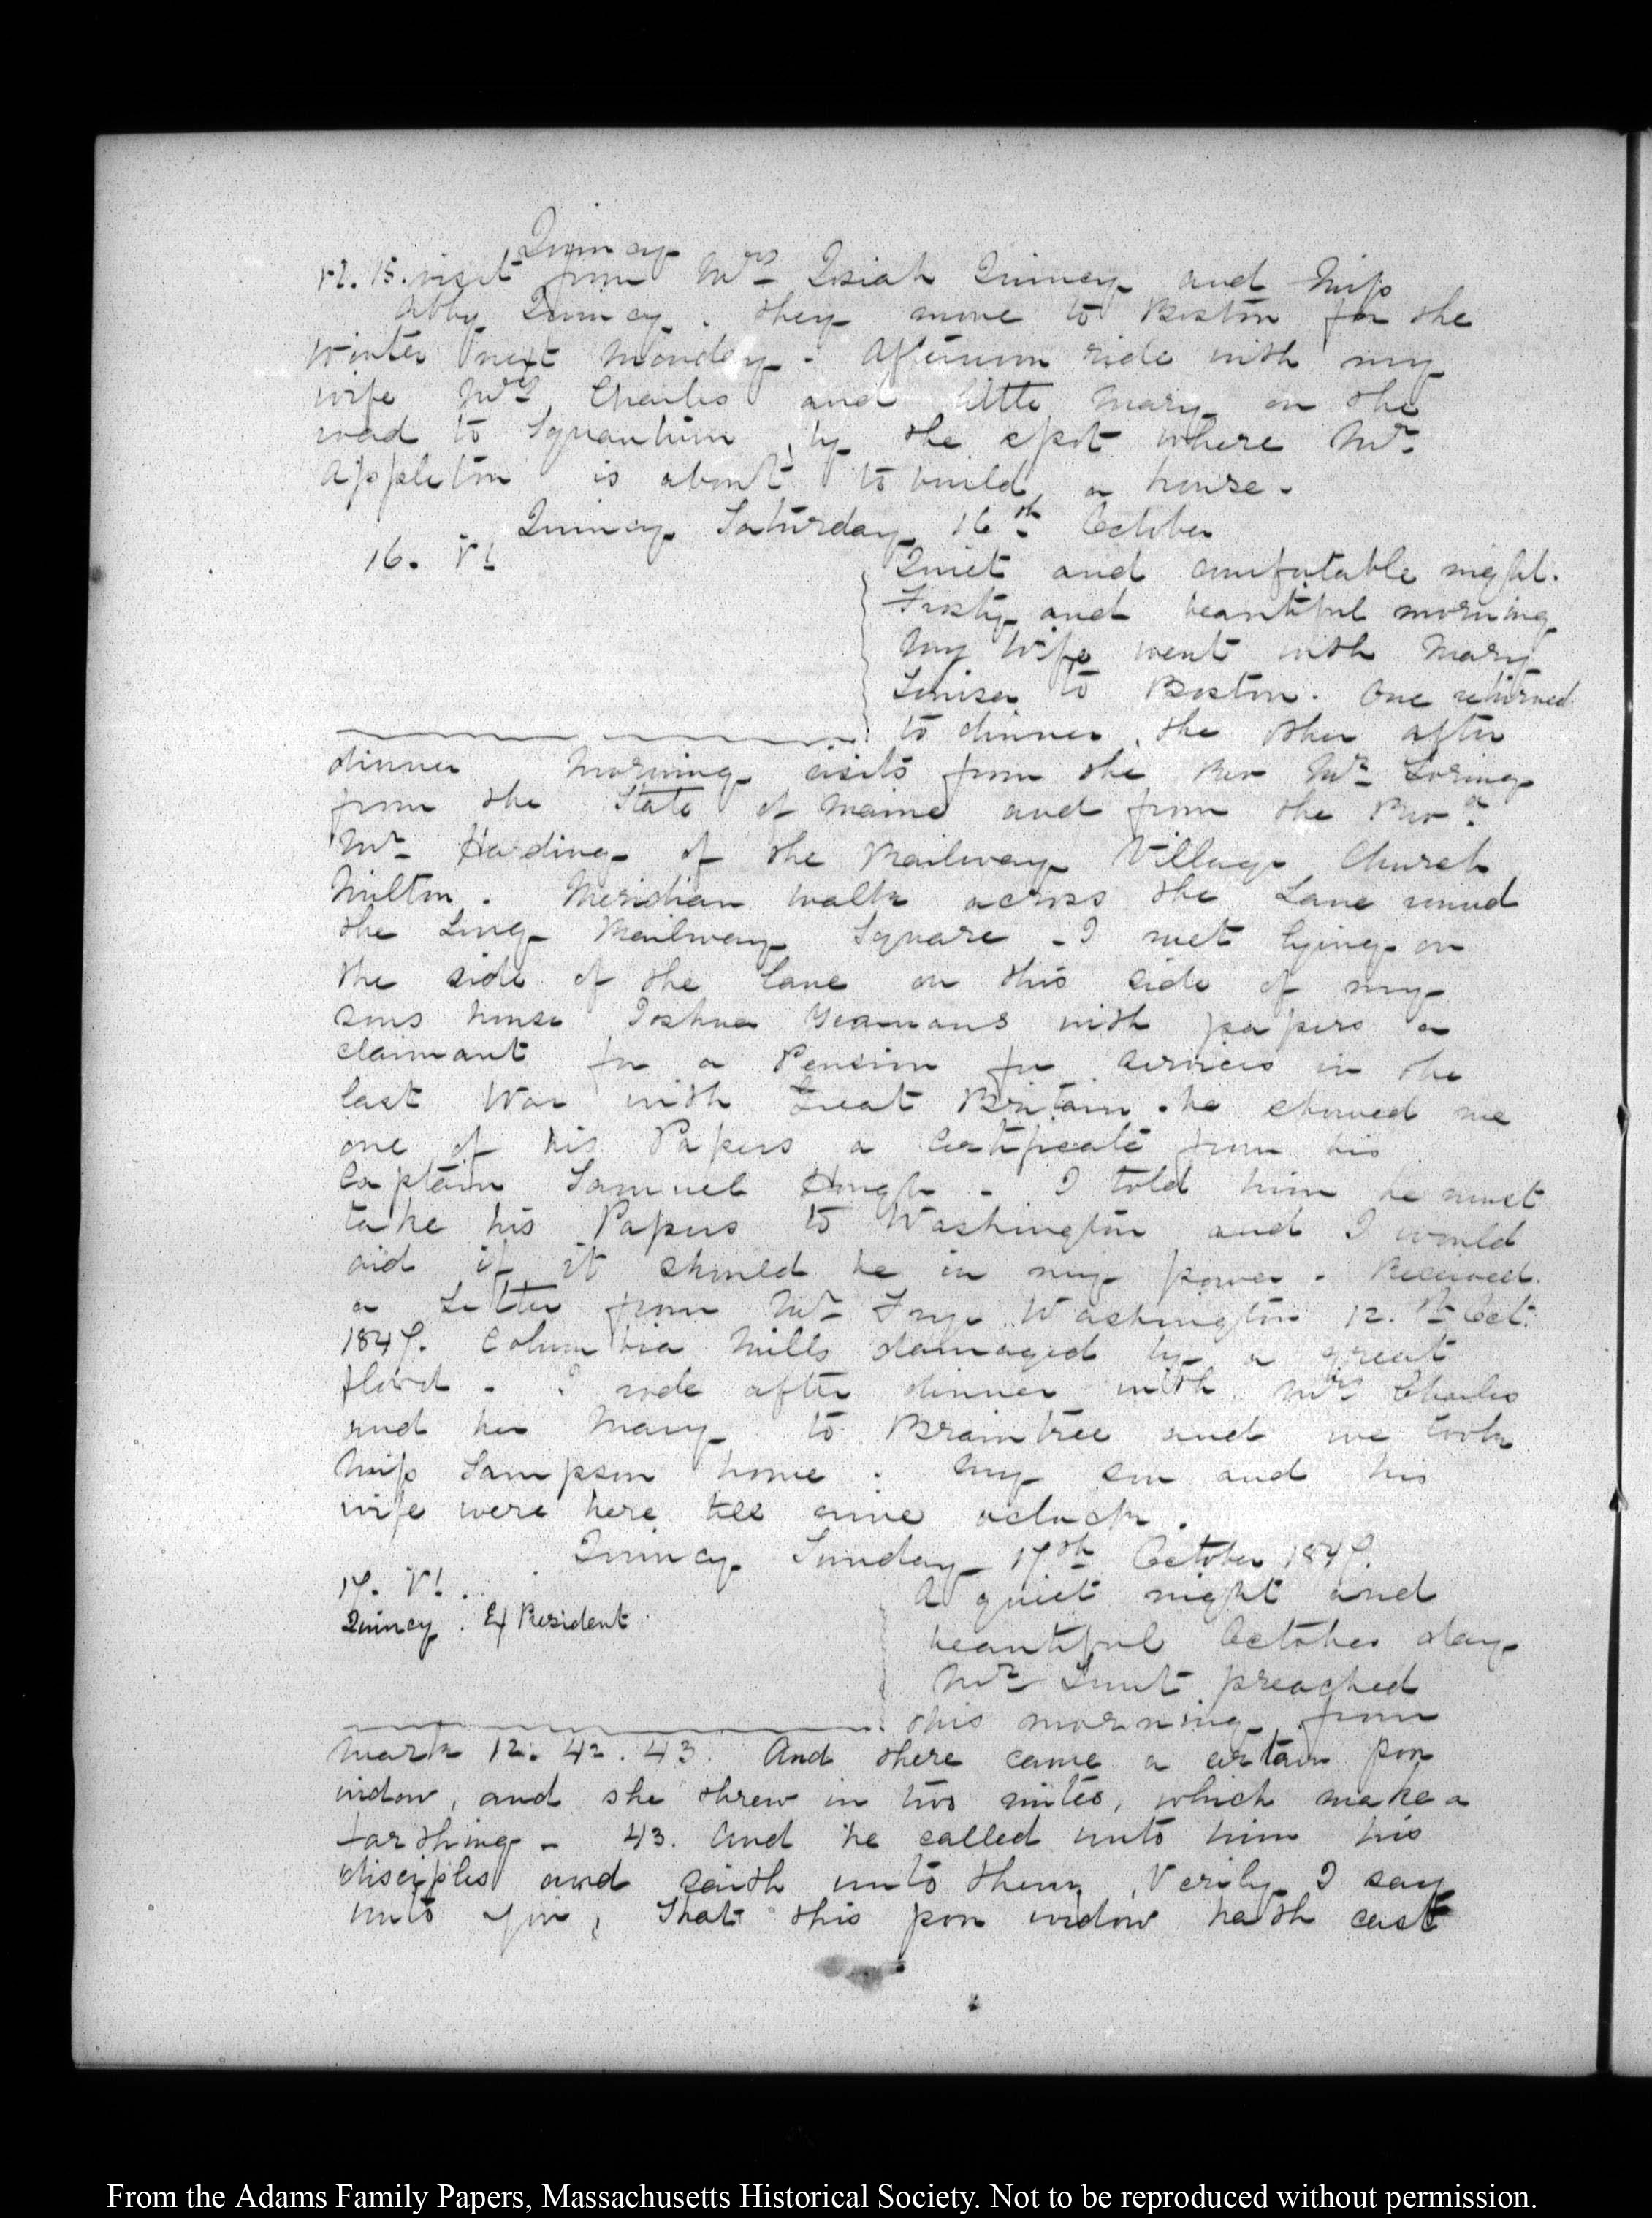 Quincy
VI. 15. visit from Mrs Josiah Quincy and Miss
Abby Quincy. they move to Boston for the
Winter next Monday. Afternoon ride with my
wife Mrs Charles and little Mary on the
road to Squantum, by the spot where Mr.
Appleton is about to build a house.
Quincy Saturday 16th October
16. VI.
Quiet and comfortable night.
Frosty and beautiful morning
My Wife went with Mary
Louisa to Boston. One returned
to dinner, the other after
dinner Morning visits from the Rev Mr Loring
from the State of Maine and from the Revd.
Mr Harding of the Railway Village Church
Milton. Meridian walk across the Lane round
the Long Railway Square - I met lying on
the side of the lane on this side of my
sons house Joshua Yeamans with papers a
claimant for a Pension for services in the
last War with Great Britain. he showed me
one of his Papers a Certificate from his
Captain Samuel Hough - I told him he must
take his Papers to Washington and I would
aid if it should be in my power. Received
a Letter from Mr Frye Washington 12.th Oct.
1847. Columbia Mills damaged by a great
flood - I rode after dinner with Mrs Charles
and her Mary to Braintree and we took
Miss Sampson home. My son and his
wife were here till nine oclock.
Quincy Sunday 17th October 1847.
17. VI.
Quincy. Ex President
A quiet night and
beautiful October day
Mr Lunt preached
this morning from
Mark 12. 42. 43. And there came a certain poor
widow, and she threw in two mites, which make a
farthing - 43. And he called unto him his
disciples and saith unto them, Verily I say
unto you, That this poor widow hath cast
From the Adams Family Papers, Massachusetts Historical Society. Not to be reproduced without permission.